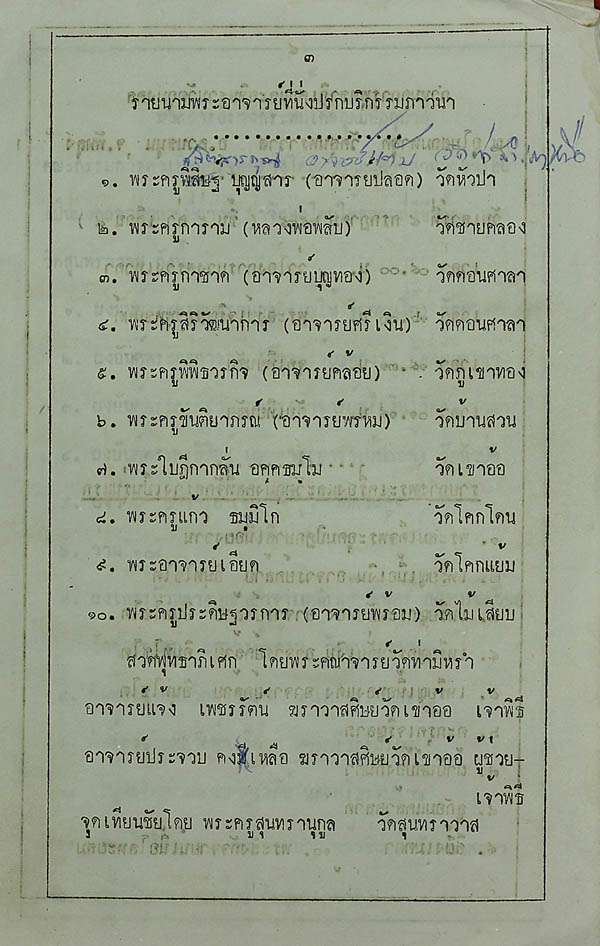 ๓
รายนามพระอาจารย์ที่นั่งปรกบริกรรมภาวนา
..................
๑. พระครูพิสิษฐ บุญญสาร (อาจารย์ปลอด) วัดหัวป่า
๒. พระครูการาม (หลวงพ่อพลับ) วัดชายคลอง
๓. พระครูกาชาด (อาจารย์บุญทอง) วัดดอนศาลา
๔. พระครูสิริวัฒนาการ (อาจารย์ศรีเงิน) วัดดอนศาลา
๕. พระครูพิพิธวรกิจ (อาจารย์คล้อย) วัดภูเขาทอง
๖. พระครูขันติยาภรณ์ (อาจารย์พรหม) วัดบ้านสวน
๗. พระใบฎีกากลั่น อคฺคธมฺโม วัดเขาอ้อ
๘. พระครูแก้ว ธมฺมิโก วัดโคกโดน
๙. พระอาจารย์เอียด วัดโคกแย้ม
๑๐. พระครูประดิษฐวรการ (อาจารย์พร้อม) วัดไม้เสียบ
สวดพุทธาภิเศก โดยพระคณาจารย์วัดท่ามิหรำ
อาจารย์แจ้ง เพชรรัตน์ ฆราวาสศิษย์วัดเขาอ้อ เจ้าพิธี
อาจารย์ประจวบ คงเหลือ ฆราวาสศิษย์วัดเขาอ้อ ผู้ช่วย-
เจ้าพิธี
จุดเทียนชัยโดย พระครูสุนทรานุกูล วัดสุนทราวาส